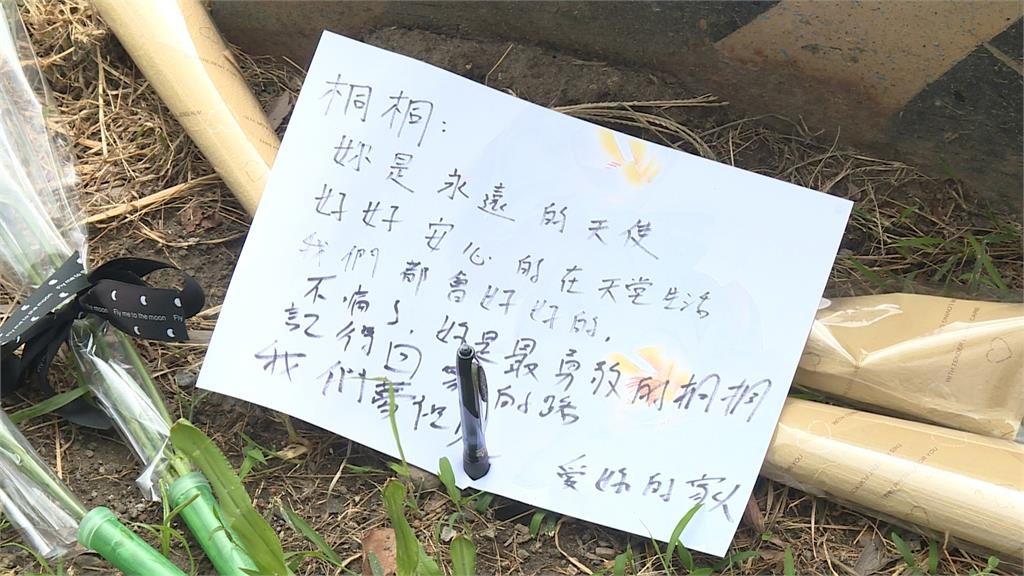 桐桐:
妳是永遠的天使
好好安心的在天堂生活
我們都會好好的,
不痛了,妳是最勇敢的桐桐
記得回家的路
我們等你
愛妳的家人
Fly me to the moon
Fly